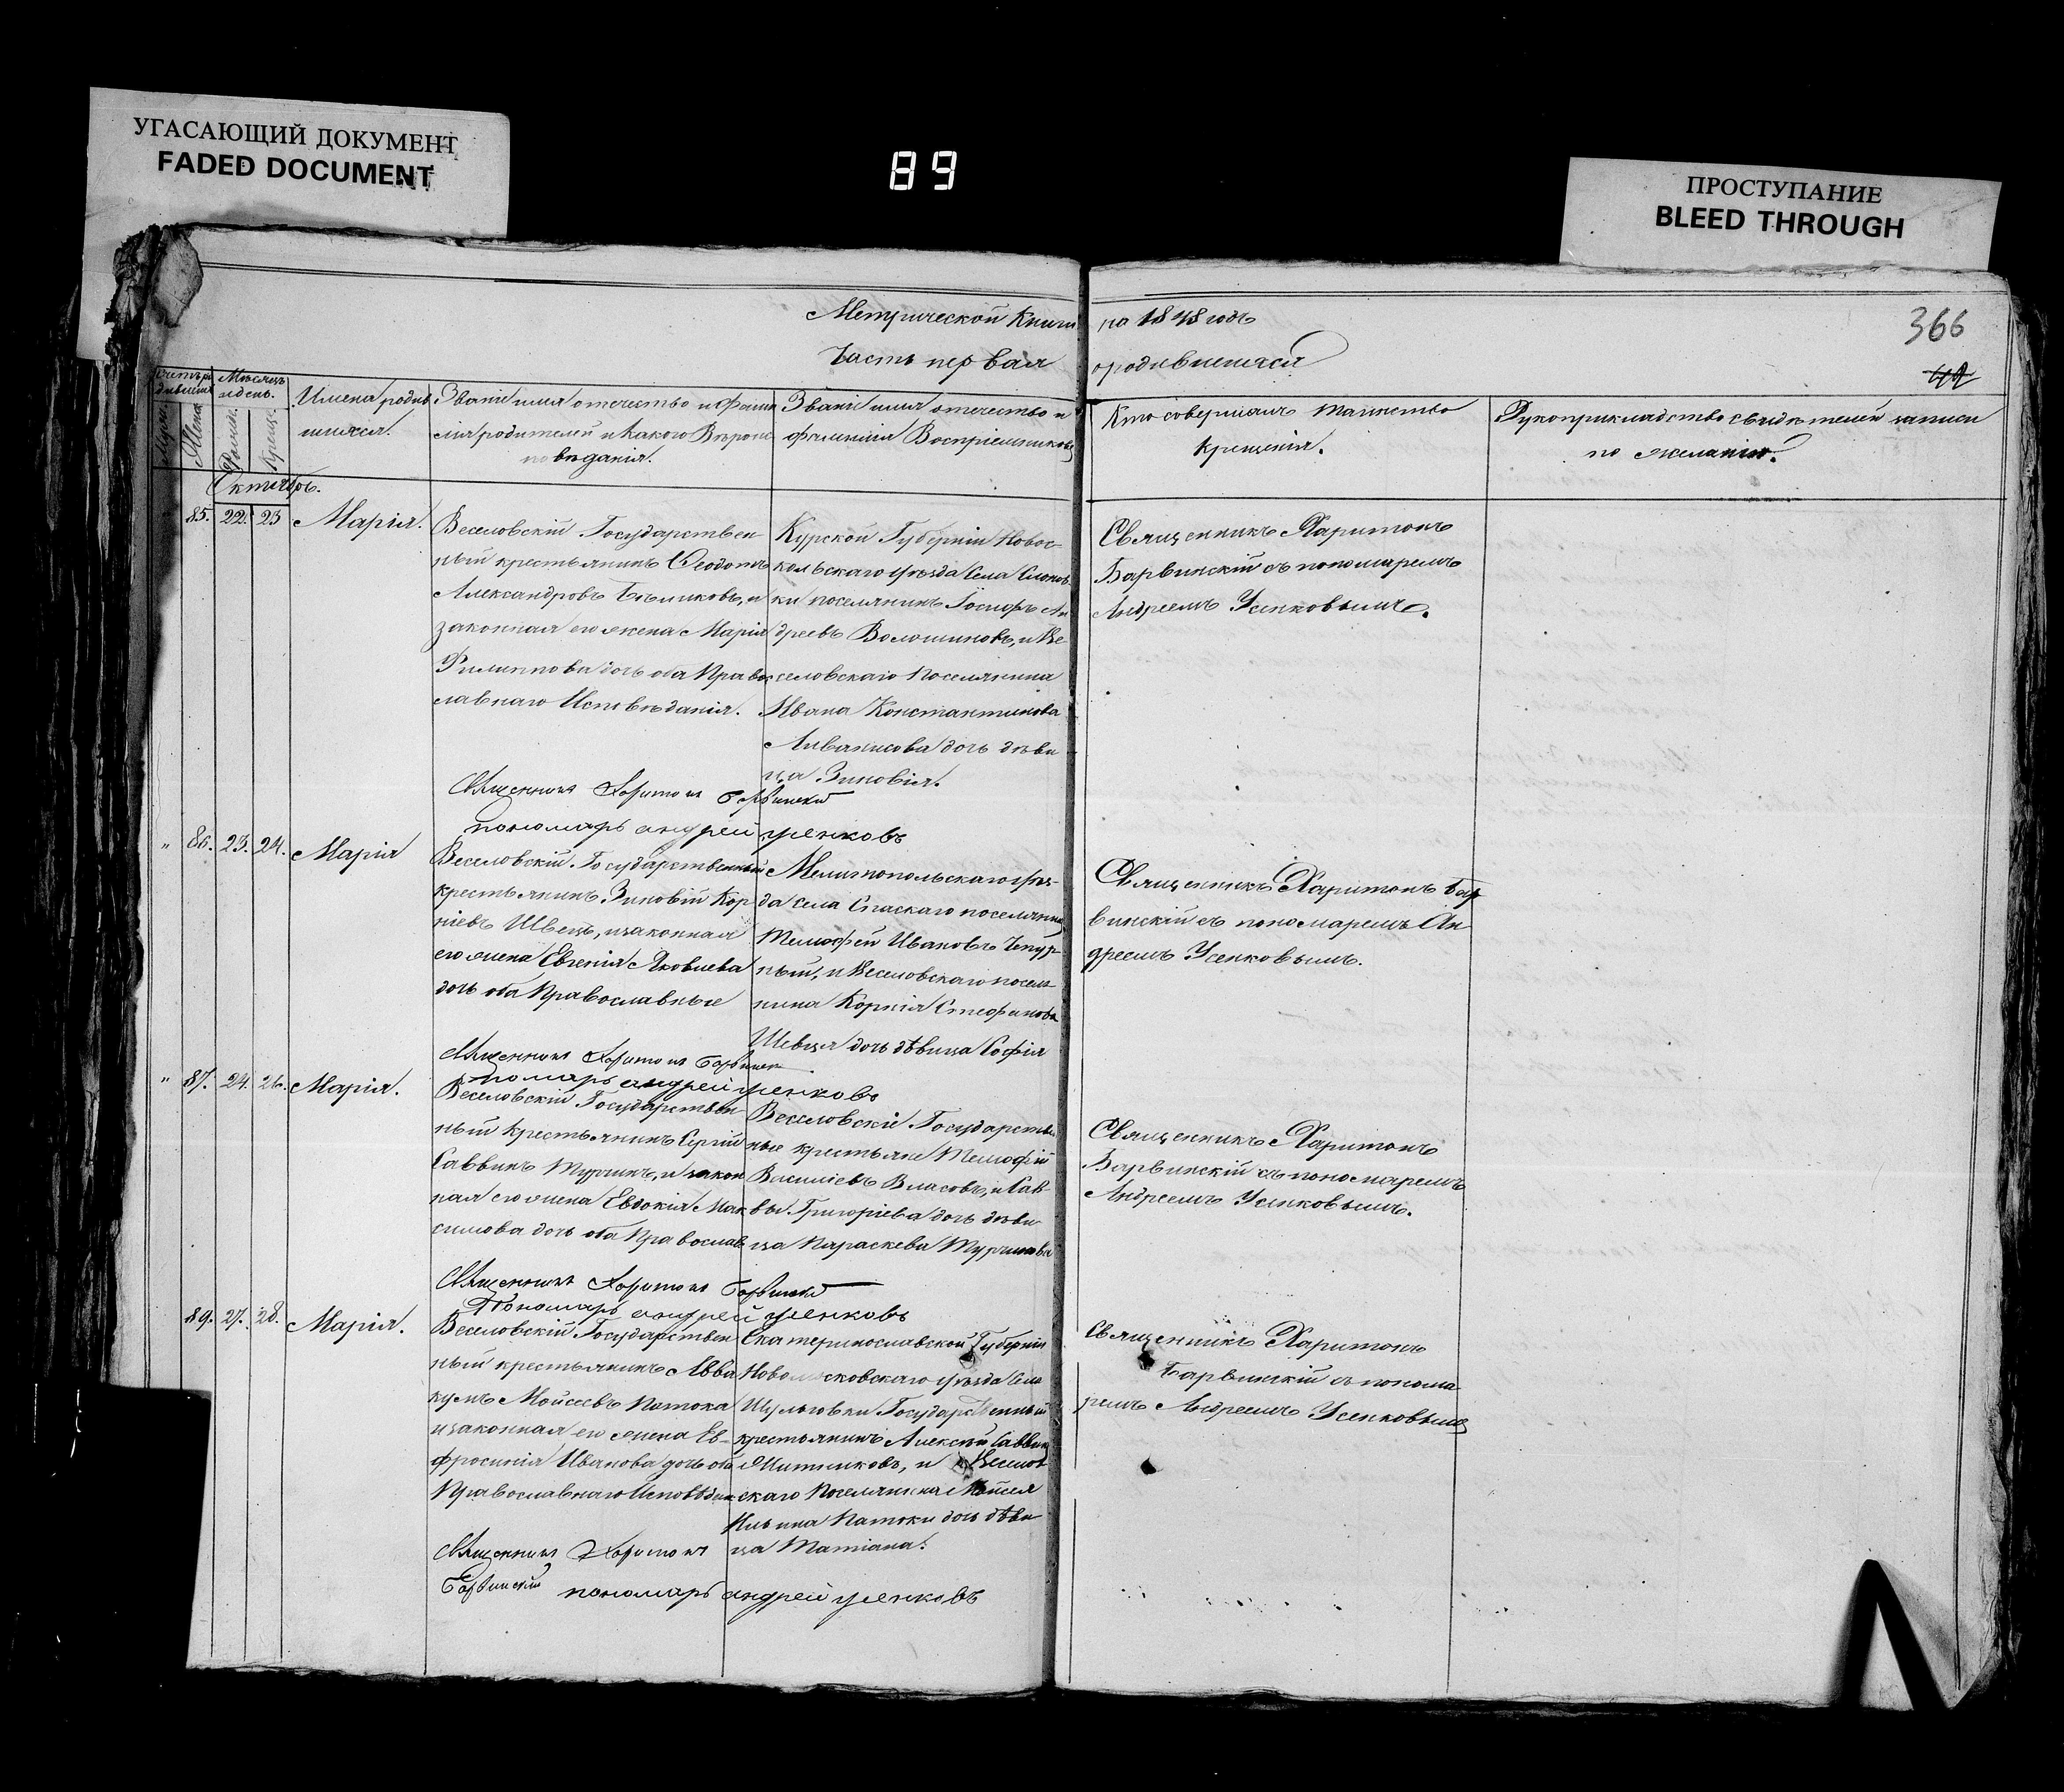 УГАСАЮЩИЙ ДОКУМЕНТ
FADED DOCUMENT
89
ПРОСТУПАНИЕ
BLEED THROUGH
366
Метрической Книги на 1848 годъ
Часть первая о родившихся
Мѣсяцъ
и день.
Имена родив
шихся.
Званіе имя отечество и фами
лія родителей и какого Вѣроис
повѣданія.
Званіе имя отечество и
фамилія Воспріемниковъ
Кто совершалъ таинство
Крещенія.
Рукоприкладство свидѣтелей записи
по желанію.
Октябрь.
85. 22. 23 Марія.
Веселовскій Государствен
ный крестьянинъ Ѳеодотъ
Александровъ Бѣликовъ, и
законная его жена Марія
Филиппова дочь оба Правос
лавнаго Исповѣданія.
Курской Губерніи Новос-
кольскаго уѣзда Села Слонов
ки поселянинъ Іосифъ Ан
дреевъ Волошиновъ, и Ве
селовскаго Поселянина
Ивана Константинова
дочь дѣви
ца Зиновія.
Священникъ Харитонъ
Барвинскій съ пономаремъ
Андреемъ Усенковымъ.
Священникъ Харитонъ Барвинскій
пономарь андрей усенковъ
" 86. 23. 24. Марія
Веселовскій Государственный
крестьянинъ Зиновій Кор
ніевъ Швецъ, и законная
его жена Евгенія Яковлева
дочь оба Православные
Мелитопольскаго уѣз-
да Села Спаскаго поселянинъ
Тимофей Ивановъ Чепур-
ный, и Веселовскаго поселя
нина Корнія Стефанова
Шевця дочь дѣвица Софія
Священникъ Харитонъ Бар
винскій съ пономаремъ Ан
дреемъ Усенковымъ.
Священникъ Харитонъ Барвинскій
пономарь андрей усенковъ
" 87. 24. 26. Марія.
Веселовскій Государствен
ный Крестьянинъ Сергій
Саввинъ Турчинъ, и закон
ная его жена Евдокія Мак
симова дочь оба Православ
Веселовскіе Государствен
ные крестьяне Тимофій
Василіевъ Власовъ, и Сав-
вы Григоріева дочь дѣви
ца Параскева Турчинова
Священникъ Харитонъ
Барвинскій съ пономаремъ
Андреемъ Усенковымъ.
Священникъ Харитонъ Барвинскій
Пономарь андрей усенковъ
89. 27. 28. Марія.
Веселовскій Государствен
ный крестьянинъ Авва
кумъ Мойсеевъ Потока
и законная его жена Ев-
фросинія Иванова дочь оба
Православнаго Исповѣдан
Екатеринославской Губерніи
Новомосковскаго уѣзда Села
Шульговки Государственный
крестьянинъ Алексѣй Саввинъ
Житниковъ, и Веселов
скаго Поселянина Мойсея
Ильина Патоки дочь дѣви
ца Татіана.
Священникъ Харитонъ
Барвинскій съ понома
ремъ Андреемъ Усенковымъ
Священникъ Харитонъ
Барвинскій пономарь андрей усенковъ